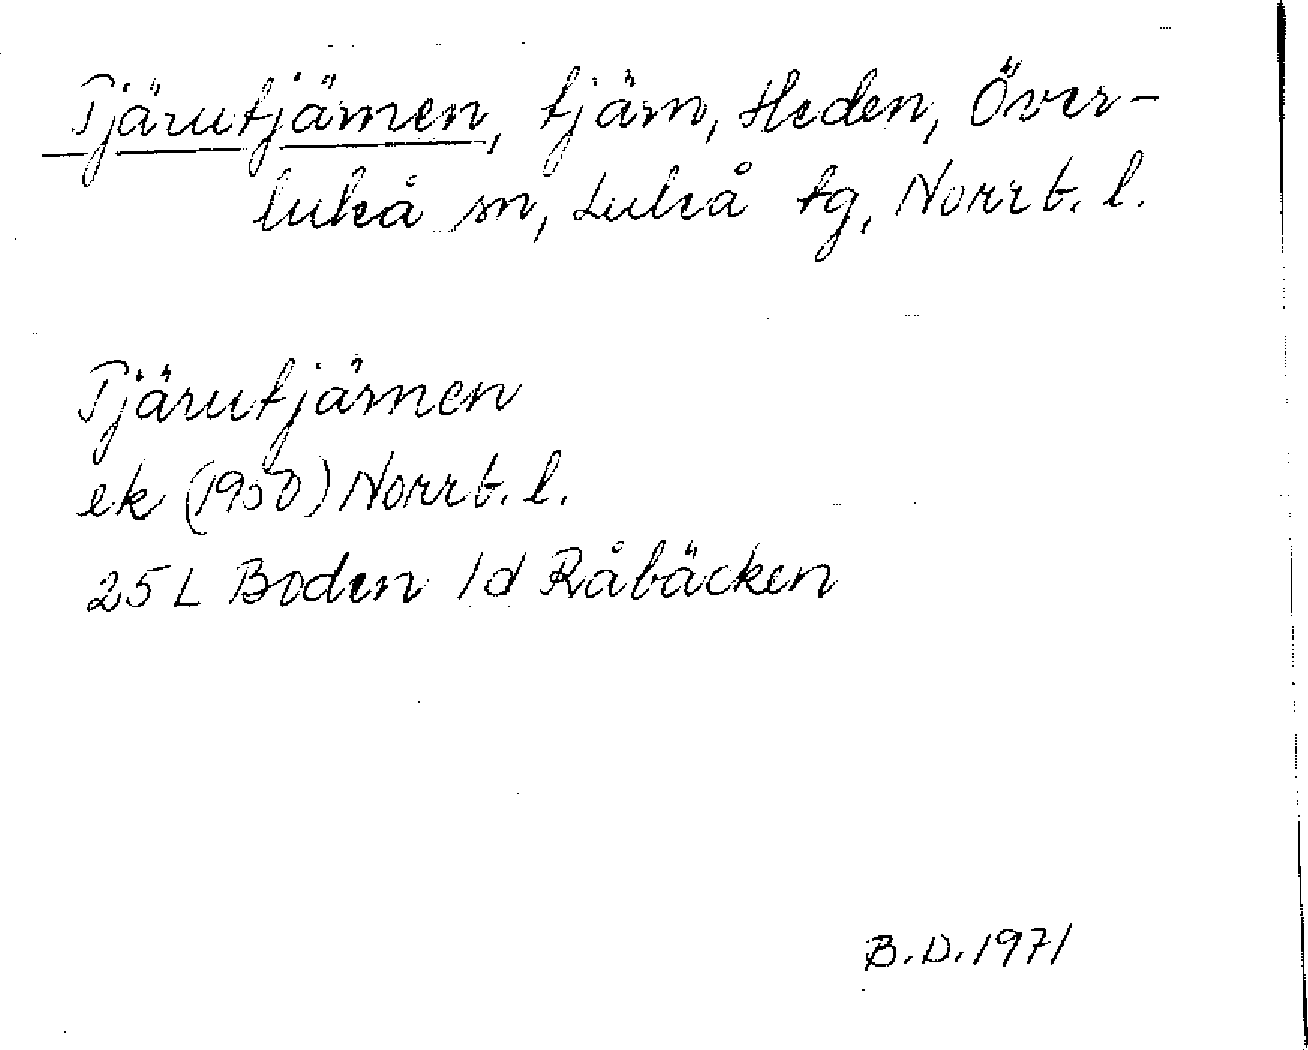 Tjärutjärnen, tjärn, Heden, Över-
luleå sn, Luleå tg, Norrb. l.
Tjärutjärnen
ek (1950) Norrb. l.
25 L Boden 1d Råbäcken
B.D. 1971